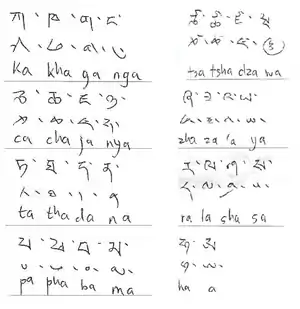 ཀ་ ཁ་ ག་ ང་
ཀ་ ཁ་ ག་ ང་
ka kha ga nga
ཅ་ ཆ་ ཇ་ ཉ་
ཅ་ ཆ་ ཇ་ ཉ་
ca cha ja nya
ཏ་ ཐ་ ད་ ན་
ཏ་ ཐ་ ད་ ན
ta tha da na
པ་ ཕ་ བ་ མ་
པ་ ཕ་ བ་ མ་
pa pha ba ma
ཙ་ ཚ་ ཛ་ ཝ
ཙ་ ཚ་ ཛ་
tsa tsha dza wa
ཞ་ ཟ་ འ་ ཡ་
ཞ་ ཟ་ འ་ ཡ་
zha za 'a ya
ར་ ལ་ ཤ་ ས་
ར་ ལ་ ཤ་ ས་
ra la sha sa
ཧ་ ཨ
ཧ་ ཨ་
ha a